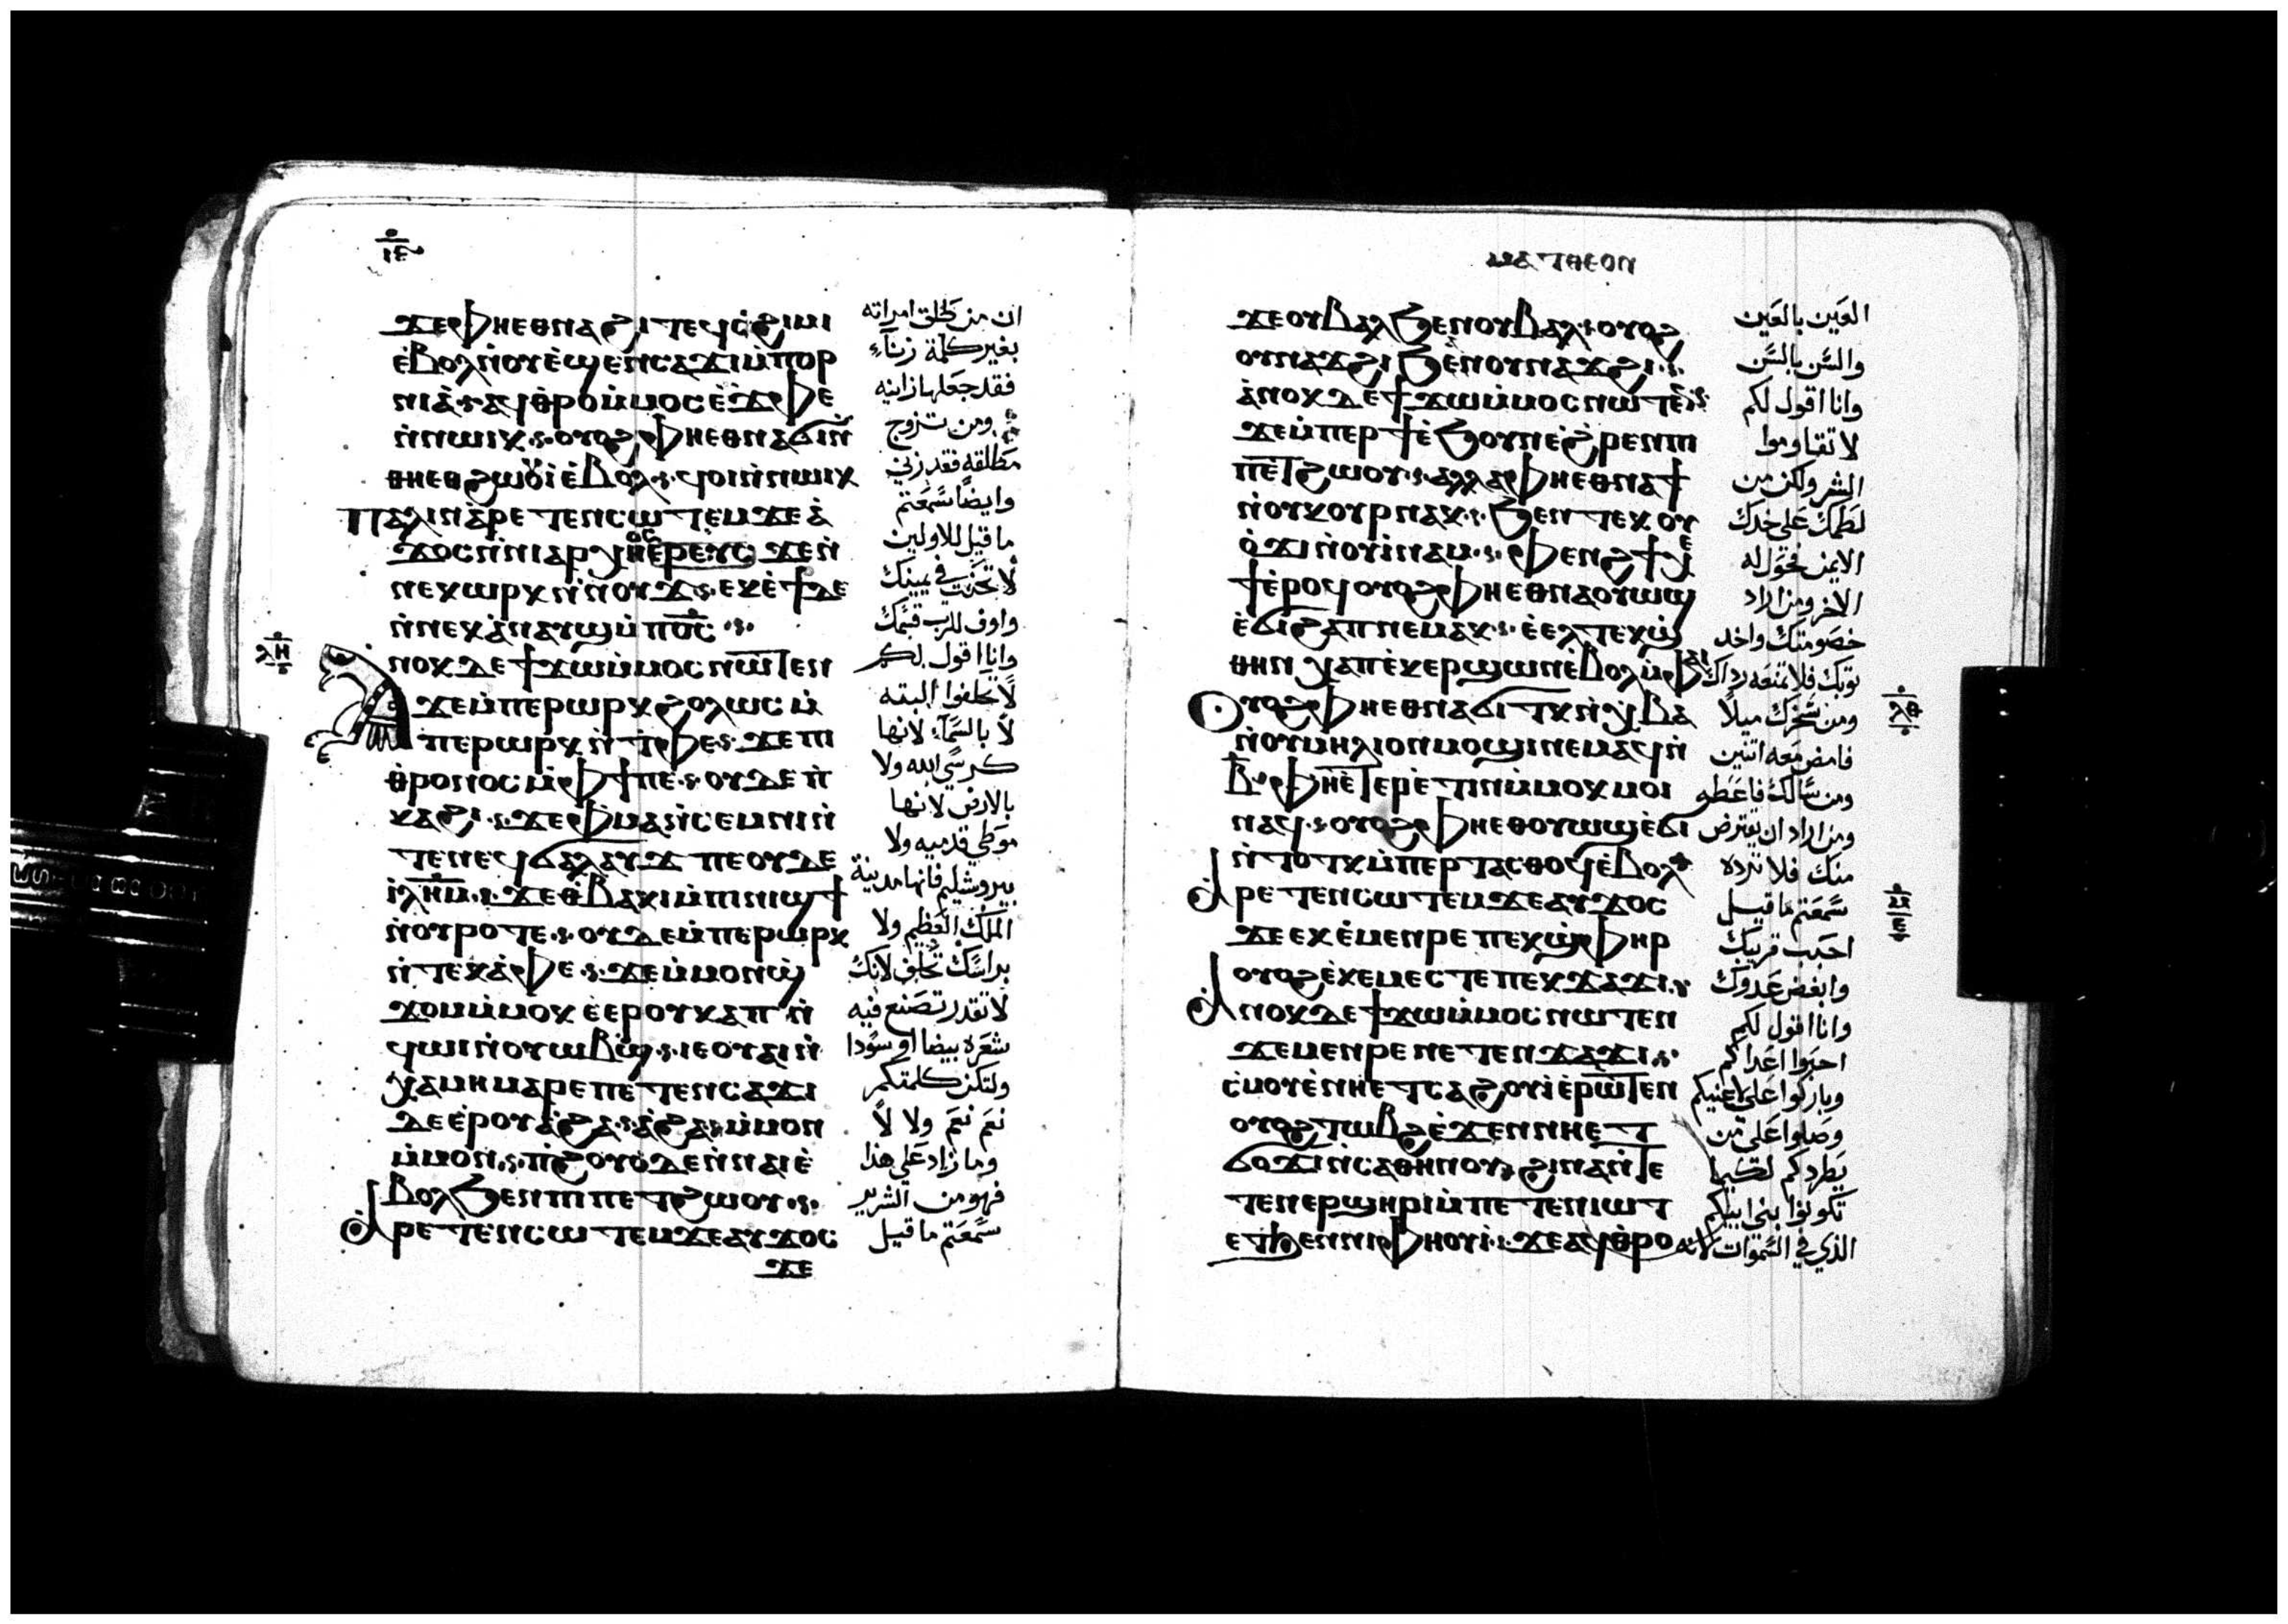 ϫⲉⲫⲏⲉⲑⲛⲁϩⲓⲧⲉϥⲥ̀ϩⲓⲙⲓ
ⲉ̀ⲃⲟⲗⲛ̀ⲟⲩⲉ̀ϣⲉⲛⲥⲁϫⲓⲙ̀ⲡⲟⲣ
ⲛⲓⲁ̀·ⲁϥⲑⲣⲟⲙ̀ⲙⲟⲥⲉ̀ϫⲫⲉ
ⲛ̀ⲛⲱⲓⲕ·ⲟⲩⲟϩⲫⲏⲉⲑⲛⲁϭⲓⲛ̀
ⲑⲏⲉⲑϩⲱⲟⲩⲓ̀ⲉ̀ⲃⲟⲗ·ϥⲟⲓⲛ̀ⲛⲱⲓⲕ
ⲡⲁⲗⲓⲛⲁ̀ⲣⲉⲧⲉⲛⲥⲱⲧⲉⲙϫⲉⲁ̀
ϫⲟⲥⲛ̀ⲛⲓⲁⲣⲭⲏⲉⲣⲉⲩⲥ ϫⲉⲛ̀
ⲛⲉⲕⲱⲣⲕ ⲛ̀ⲛⲟⲩϫ·ⲉⲕⲉ̀ϯⲇⲉ
ⲛ̀ⲛⲉⲕⲁ̀ⲛⲁⲩϣⲙ̀ⲡⲟ̅ⲥ̅·
ⲗⲏ
ⲁⲛⲟⲕⲇⲉϯϫⲱⲙ̀ⲙⲟⲥⲛⲱⲧⲉⲛ
ϫⲉⲙ̀ⲡⲉⲣⲱⲣⲕϩⲟⲗⲱⲥ ⲙ̀
ⲡⲉⲣⲱⲣⲕ ⲛ̀ⲧ̀ⲫⲉ·ϫⲉⲡⲓ
ⲑ̀ⲣⲟⲛⲟⲥⲙ̀ⲫϯⲡⲉ·ⲟⲩⲇⲉ ⲛ̀
ⲕⲁϩⲓ·ϫⲉⲫⲙⲁⲛ̀ⲥⲉⲙⲛⲓⲛ̀
ⲧⲉⲛⲉϥϭⲁⲗⲁⲩϫ ⲡⲉⲟⲩⲇⲉ
ⲓ̀ⲗ̅ⲏ̅ⲙ̅·ϫⲉⲑ̀ⲃⲁⲕⲓⲙ̀ⲡⲓⲛⲓϣϯ
ⲛ̀ⲟⲩⲣⲟⲧⲉ·ⲟⲩⲇⲉⲙ̀ⲡⲉⲣⲱⲣⲕ
ⲛ̀ⲧⲉⲕⲁ̀ⲫⲉ·ϫⲉⲙ̀ⲙⲟⲛϣ̀
ϫⲟⲙⲙ̀ⲙⲟⲕ ⲉ̀ⲉⲣⲟⲩⲕⲁⲡ ⲛ̀
ϥⲱⲓⲛ̀ⲟⲩⲱⲃϣ·ⲓⲉⲟⲩⲁⲓⲛ̀
ⲭⲁⲙⲏⲙⲁⲣⲉⲡⲉⲧⲉⲛⲥⲁϫⲓ
ⲇⲉⲉ̀ⲣⲟⲩⲁ̀ϩⲁ·ⲁ̀ϩⲁ·ⲙ̀ⲙⲟⲛ
ⲙ̀ⲙⲟⲛ·ⲡ̀ϩⲟⲩⲟ̀ⲇⲉⲛ̀ⲛⲁⲓⲉ̀
ⲃⲟⲗϧⲉⲛⲡⲓⲡⲉⲧϩⲱⲟⲩ·
ⲁⲣⲉⲧⲉⲛⲥⲱⲧⲉⲙϫⲉⲁⲩϫⲟⲥ
ϫⲉ
ان من طلق امراته
بغير كلمة زناء
فقد جعلها زانيه
ومن تزوج
مطلقه فقد زني
وايضا سمعتم
ما قيل للاولين
لا تحنث في يمينك
واوف للرب قسمك
وانا اقول لكم
لا تحلفوا البته
لا بالسماء لانها
كرسي الله ولا
بالارض لانها
موطي قدميه ولا
بيروشليم فانها مدينة
الملك العظيم ولا
براسك تحلف لانك
لا تقدر تصنع فيه
شعره بيضا او سودا
ولتكن كلمتكم
نعم نعم ولا لا
وما زاد علي هذا
فهو من الشرير
سمعتم ما قيل
ⲙⲁⲧⲑⲉⲟⲛ
ϫⲉⲟⲩⲃⲁⲗϧⲉⲛⲟⲩⲃⲁⲗ·ⲟⲩⲟϩ
ⲟⲩⲛⲁϫϩⲓϧⲉⲛⲟⲩⲛⲁϫϩⲓ·
ⲁ̀ⲛⲟⲕⲇⲉϯϫⲱⲙ̀ⲙⲟⲥⲛⲱⲧⲉⲛ
ϫⲉⲙ̀ⲡⲉⲣϯⲉ̀ϧⲟⲩⲛⲉ̀ϩⲣⲉⲛⲡⲓ
ⲡⲉⲧϩⲱⲟⲩ·ⲁⲗⲗⲁⲫⲏⲉⲑⲛⲁϯ
ⲛ̀ⲟⲩⲕⲟⲩⲣⲛⲁⲕ·ϧⲉⲛⲧⲉⲕⲟⲩ
ⲟ̀ϫⲓⲛ̀ⲟⲩⲓ̀ⲛⲁⲙ·ⲫⲉⲛϩϯⲭⲉ
ϯⲉ̀ⲣⲟϥⲟⲩⲟϩⲫⲏⲉⲑⲛⲁⲟⲩⲱϣ
ⲉ̀ϭⲓϩⲁⲡⲛⲉⲙⲁⲕ·ⲉ̀ⲉⲗⲧⲉⲕϣ̀
ⲑⲏⲛ ⲭⲁⲡⲉⲕⲉⲣϣⲱⲛⲉ̀ⲃⲟⲗⲙ̀ⲫⲁⲓ
ⲟⲩⲟϩⲫⲏⲉⲑⲛⲁϭⲓⲧⲕ ⲛ̀ⲭ̀ⲃⲁ
ⲛ̀ⲟⲩⲙⲏⲗⲓⲟⲛⲙⲟϣⲓⲛⲉⲙⲁϥⲛ̀
ⲃ̅·ⲫⲏⲉ̀ⲧⲉⲣⲉ̀ⲧⲓⲛⲙ̀ⲙⲟⲕⲙⲟⲓ
ⲛⲁϥ·ⲟⲩⲟϩⲫⲏⲉⲑⲟⲩⲱϣⲉ̀ϭⲓ
ⲛ̀ⲧⲟⲧⲕⲙ̀ⲡⲉⲣⲧⲁⲥⲑⲟϥⲉ̀ⲃⲟⲗ
ⲁⲣⲉⲧⲉⲛⲥⲱⲧⲉⲙϫⲉⲁⲩϫⲟⲥ
ϫⲉⲉⲕⲉ̀ⲙⲉⲛⲣⲉⲡⲉⲕϣ̀ⲫⲏⲣ
ⲟⲩⲟϩⲉ̀ⲕⲉⲙⲉⲥⲧⲉⲡⲉⲕϫⲁϫⲓ·
ⲁⲛⲟⲕⲇⲉϯϫⲱⲙ̀ⲙⲟⲥⲛⲱⲧⲉⲛ
ϫⲉⲙⲉⲛⲣⲉⲛⲉⲧⲉⲛϫⲁϫⲓ·
ⲥ̀ⲙⲟⲩⲉ̀ⲛⲏⲉ̀ⲧⲥⲁϩⲟⲩⲓ̀ⲉⲣⲱⲧⲉⲛ
ⲟⲩⲟϩⲧⲱⲃϩⲉ̀ϫⲉⲛⲛⲏⲉⲧ
ϭⲟϫⲓⲛ̀ⲥⲁⲑⲏⲛⲟⲩϩⲓⲛⲁⲛ̀ⲧⲉ
ⲧⲉⲛⲉⲣϣⲏⲣⲓⲙ̀ⲡⲉⲧⲉⲛⲓⲱⲧ
ⲉⲧϧⲉⲛⲛⲓⲫⲏⲟⲩⲓ̀·ϫⲉⲁϥⲑⲣⲟ
العين بالعين
والسن بالسن
وانا اقول لكم
لا تقاوموا
الشر ولكن من
لطمك علي خدك
الايمن فحول له
الاخر ومن اراد
خصومتك واخد
توبك فلا تمنعه رداك
ومن سخرك ميلا
فامض معه اتنين
ومن سالك فاعطه
ومن اراد ان يقترض
منك فلا ترده
سمعتم ما قيل
احبب قريبك
وابغض عدوك
وانا اقول لكم
احبوا اعداكم
وباركوا علي لاعنيكم
وصلوا علي من
يطردكم لكيما
تكونوا بني ابيكم
الذي في السموات لانه
ⲗⲑ
ⲙ
ⲉ